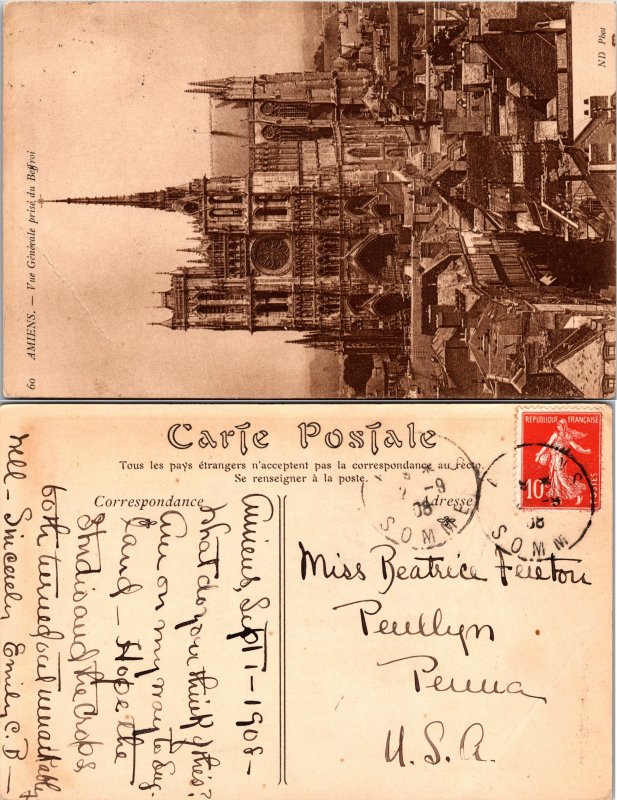 60 AMIENS. — Vue Générale prise du Beffroi
ND Phot
Carte Postale
Tous les pays étrangers n'acceptent pas la correspondance au recto.
Se renseigner à la poste.
Correspondance
Adresse
REPUBLIQUE FRANÇAISE
10
POSTES
SOMME
08
SOMME
08
Amiens, Sept 1-1908-
What do you think of this?
Am on my way to Eng-
land - Hope the
Studio and the Crops
both turned out
well - Sincerely Emily C. D-
Miss Beatrice
Penllyn
Penna
U.S.A.